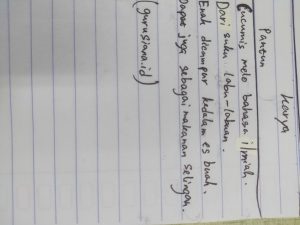 Karya
Pantun
Cucumis melo bahasa ilmiah.
Dari suku labu-labuan.
Enak dicampur kedalam es buah.
Dapat juga sebagai makanan selingan.
(gurusiana.id)